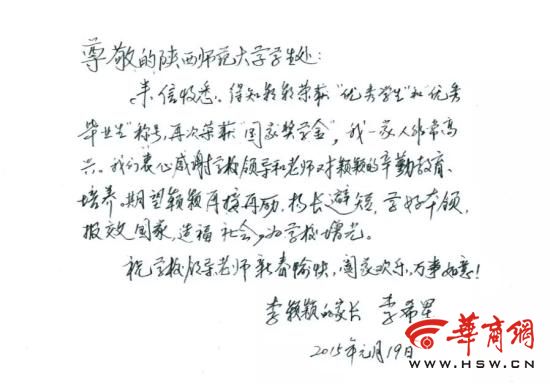 尊敬的陕西师范大学学生处：
来信收悉。得知颖颖荣获“优秀学生”和“优秀
毕业生”称号，再次荣获“国家奖学金”，我一家人非常高
兴。我们衷心感谢学校领导和老师对颖颖的辛勤教育、
培养。期望颖颖再接再励，扬长避短，学好本领，
报效国家，造福社会，为学校增光。
祝学校领导老师新春愉快，阖家欢乐，万事如意！
李颖颖的家长 李希星
2015年元月19日
华商网
WWW.HSW.CN